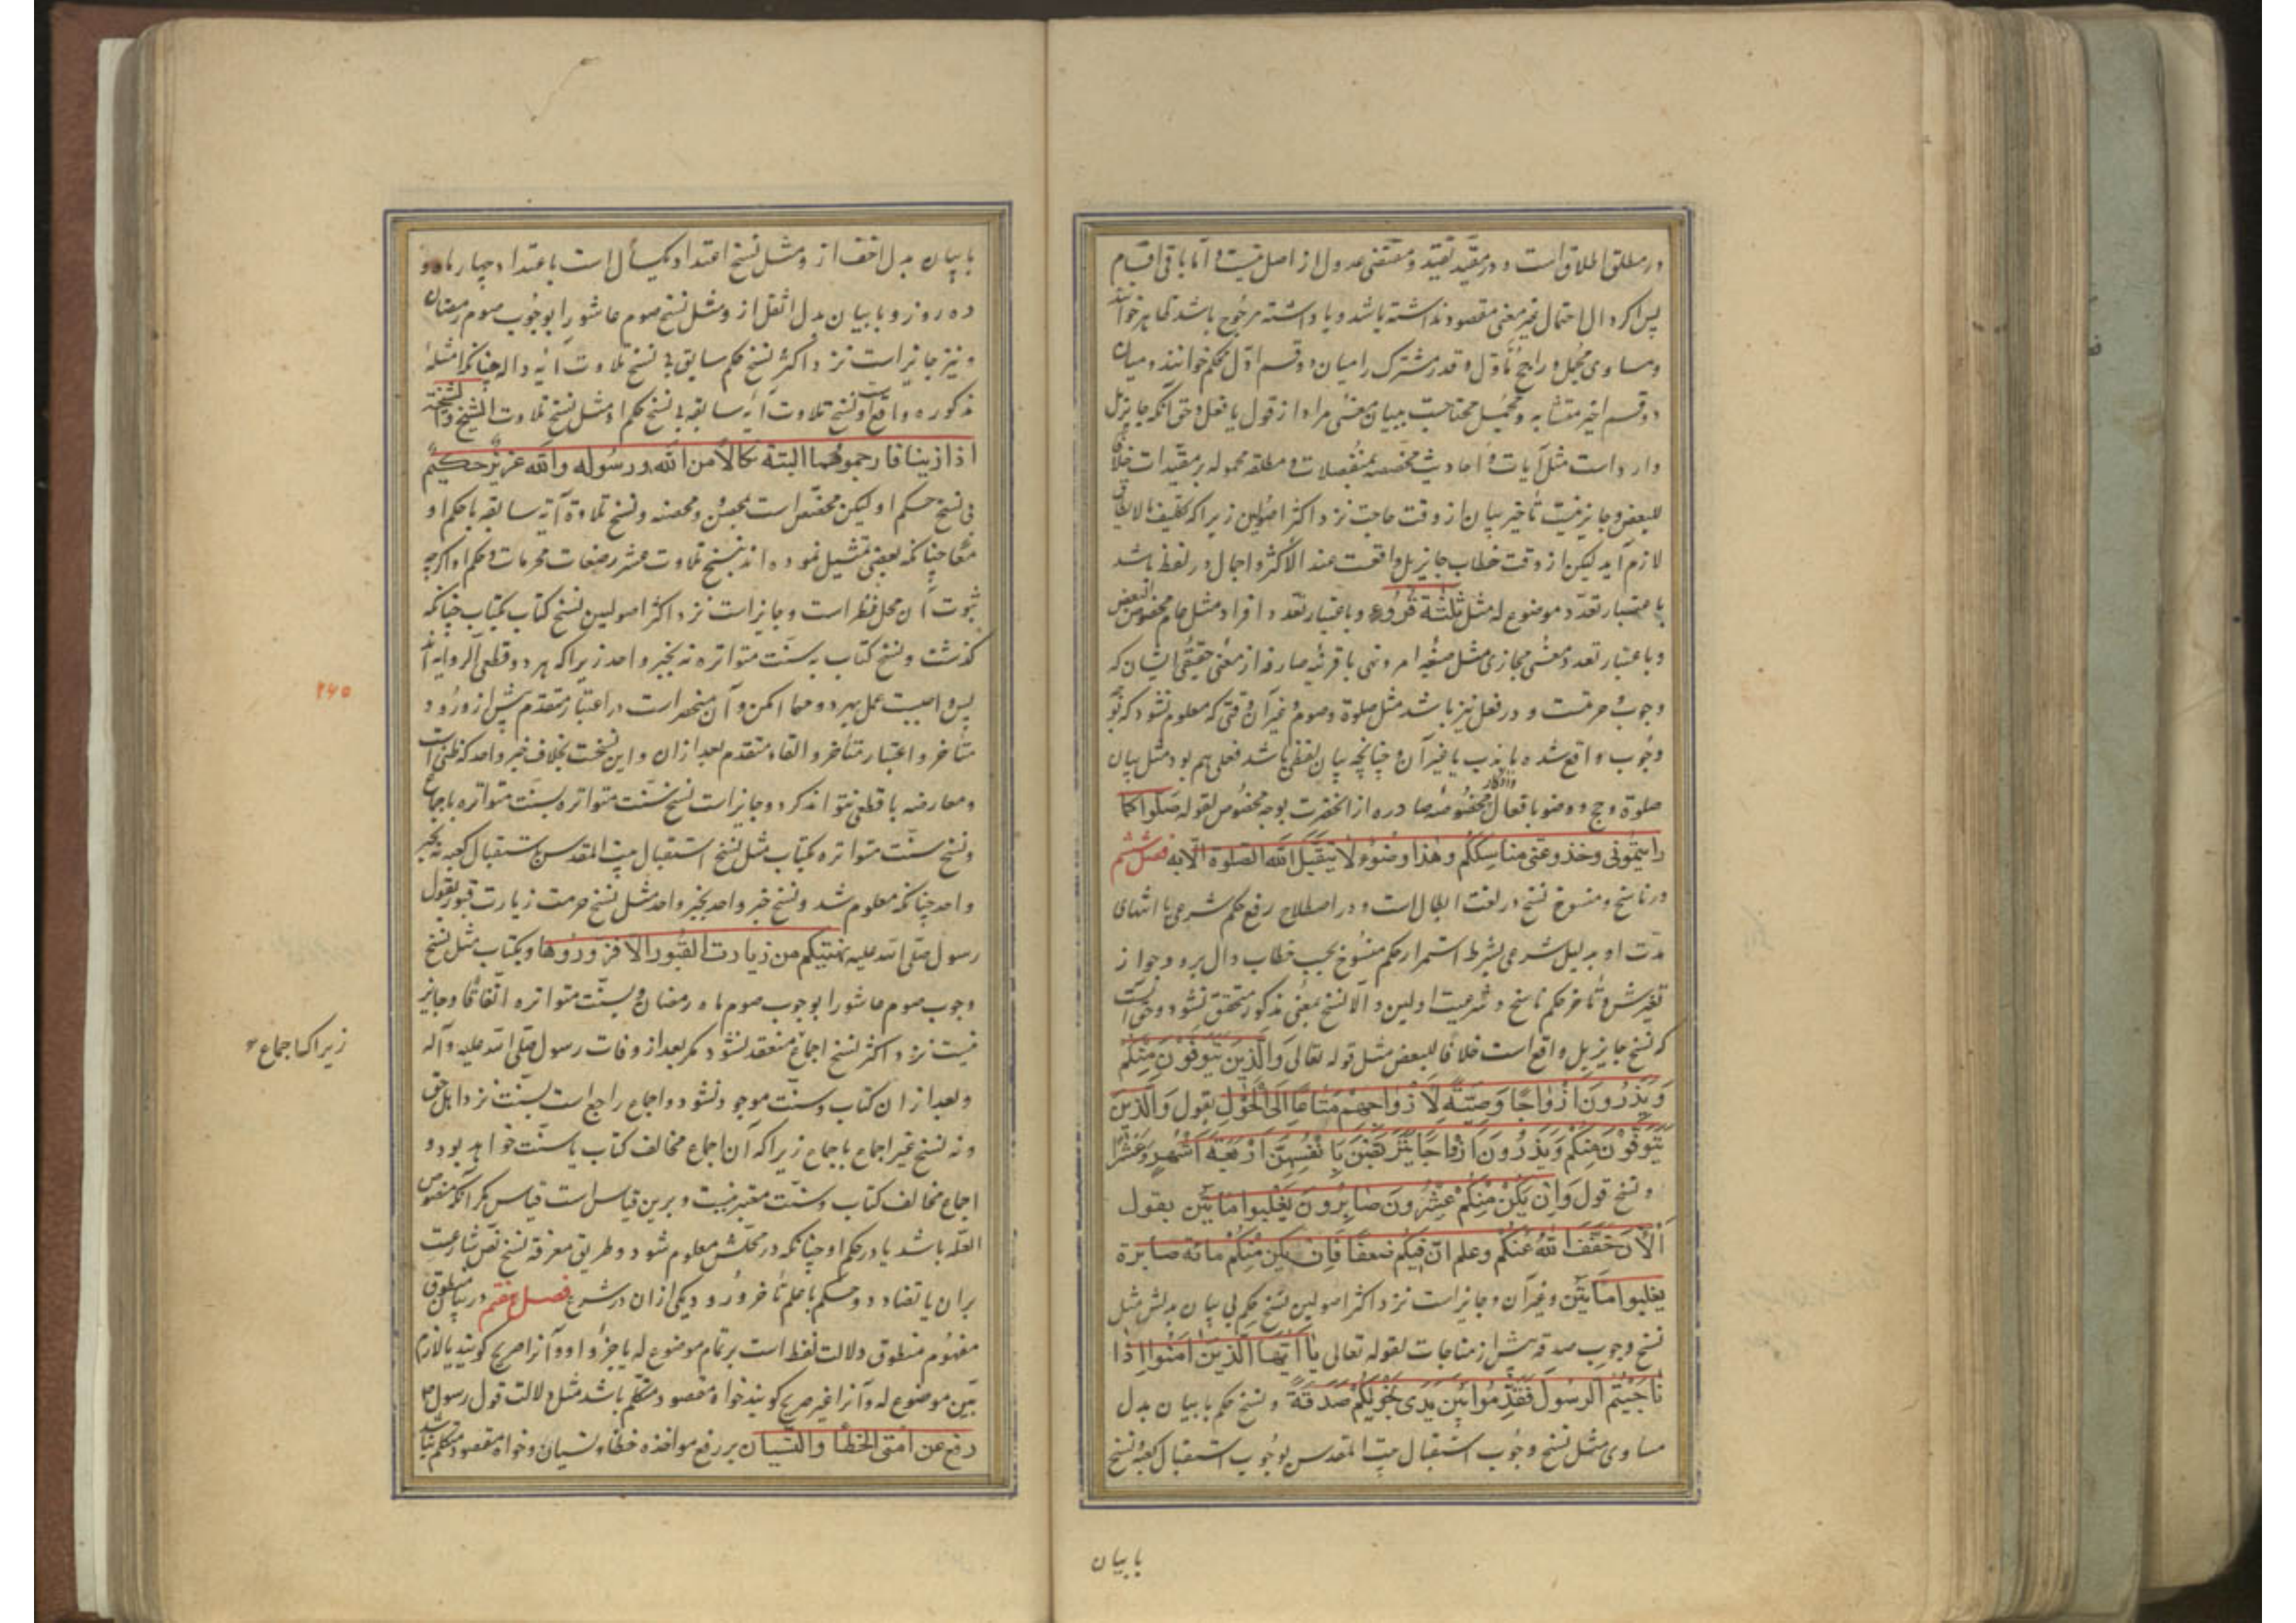 در مطلق اطلاق است و در مقید تقیید و مقتضی عدول از اصل نیست و اما باقی اقسام
پس اگر دال احتمال غیر معنی مقصود نداشته باشد و یا داشته مرجوح باشد ظاهر خوانند
و مساوی مجمل و راجح مأول و قدر مشترک را میان دو قسم اول محکم خوانند و میان
دو قسم اخیر متشابه و مجمل محتاجست ببیان معنی مراد از قول یا فعل و حق آنکه جایز بل
وارد است مثل آیات و احادیث مخصصه بمنفصلات و مطلقه محموله بر مقیدات خلافا
للبعض و جایز نیست تأخیر بیان از وقت حاجت نزد اکثر اصولین زیرا که تکلیف مالایطاق
لازم آید لیکن از وقت خطاب جایز بل واقعست عند الاکثر و اجمال در لفظ باشد
باعتبار تعدد موضوع له مثل ثلثة قروء و باعتبار تعدد افراد مثل عام مخصوص البعض
و باعتبار تعدد معنی مجازی مثل صیغه امر و نهی با قرینه صارفه از معنی حقیقی ایشان که
وجوب و حرمتست و در فعل نیز باشد مثل صلوة و صوم و غیر آن وقتی که معلوم نشود که بر
وجوب واقع شده یا ندب یا غیر آن و چنانچه بیان لفظی باشد فعلی هم بود مثل بیان
صلوة و حج و وضو بافعال و اذکار مخصوصه صادره از انحضرت بوجه مخصوص لقوله صلوا کما
رایتمونی و خذوا عنی مناسککم و هذا وضوء لا یتقبل الله الصلوة الا به فصل ششم
در ناسخ و منسوخ نسخ در لغت ابطال است و در اصطلاح رفع حکم شرعی یا انتهای
مدت او بدلیل شرعی بشرط استمرار حکم منسوخ بحسب خطاب دال برو و جواز
تغیرش و تأخر حکم ناسخ و شرعیت اولین و الا نسخ بمعنی مذکور متحقق نشود و حق آنست
که نسخ جایز بل واقع است خلافا للبعض مثل قوله تعالی وَالَّذِینَ یُتَوَفَّوْنَ مِنْکُمْ
وَیَذَرُونَ اَزْوَاجًا وَصِیَّةً لِاَزْوَاجِهِمْ مَتَاعًا اِلَی الْحَوْلِ بقول وَالَّذِینَ
یُتَوَفَّوْنَ مِنْکُمْ وَیَذَرُونَ اَزْوَاجًا یَتَرَبَّصْنَ بِاَنْفُسِهِنَّ اَرْبَعَةَ اَشْهُرٍ وَعَشْرًا
و نسخ قول وَاِنْ یَکُنْ مِنْکُمْ عِشْرُونَ صَابِرُونَ یَغْلِبُوا مِائَتَیْنِ بقول
اَلْآنَ خَفَّفَ اللهُ عَنْکُمْ وعلم انّ فیکم ضعفا فان یکن منکم مائة صابرة
یغلبوا مائتین و غیر آن و جایز است نزد اکثر اصولین نسخ حکم بی بیان بدلش مثل
نسخ وجوب صدقه پیش از مناجات لقوله تعالی یا اَیُّهَا الَّذِینَ آمَنُوا اِذَا
نَاجَیْتُمُ الرَّسُولَ فَقَدِّمُوا بَیْنَ یَدَیْ نَجْوٰیکُمْ صَدَقَةً و نسخ حکم با بیان بدل
مساوی مثل نسخ وجوب استقبال بیت المقدس بوجوب استقبال کعبه و نسخ
با بیان
با بیان بدل اخف ازو مثل نسخ اعتداد یکسال است باعتداد چهار ماه و
ده روز و با بیان بدل اثقل ازو مثل نسخ صوم عاشورا بوجوب صوم رمضان
و نیز جایز است نزد اکثر نسخ حکم سابق بی نسخ تلاوت آیه داله چنانکه امثله
مذکوره واقع است و نسخ تلاوت آیه سابقه بی نسخ حکم او مثل نسخ تلاوت الشیخ و الشیخة
اذا زنیا فارجموهما البتة نکالاً من الله ورسوله والله عزیز حکیم
بی نسخ حکم او لیکن مختص است بمحصن و محصنه و نسخ تلاوة آیه سابقه با حکم او
معا چنانکه بعضی تمثیل نموده اند بنسخ تلاوت عشر رضعات محرمات و حکم او اگرچه
ثبوت آن محل نظر است و جایز است نزد اکثر اصولین نسخ کتاب بکتاب چنانکه
گذشت و نسخ کتاب به سنت متواتره نه بخبر واحد زیرا که هر دو قطعی الروایه اند
پس واجبست عمل بهر دو مهما امکن و آن منحصر است در اعتبار متقدم پیش از ورود
متأخر و اعتبار متأخر و القاء متقدم بعد ازان و این نسخت بخلاف خبر واحد که ظنی است
و معارضه با قطعی نتواند کرد و جایز است نسخ سنت متواتره بسنت متواتره باجماع
و نسخ سنت متواتره بکتاب مثل نسخ استقبال بیت المقدس باستقبال کعبه نه بخبر
واحد چنانکه معلوم شد و نسخ خبر واحد بخبر واحد مثل نسخ حرمت زیارت قبور بقول
رسول صلی الله علیه نهیتکم من زیارت القبور الا فزوروها و بکتاب مثل نسخ
وجوب صوم عاشورا بوجوب صوم ماه رمضان و بسنت متواتره اتفاقا و جایز
نیست نزد اکثر نسخ اجماع منعقد نشود مگر بعد از وفات رسول صلی الله علیه وآله
و بعد ازان کتاب و سنت موجود نشود و اجماع راجع است بسنت نزد اهل حق
و نه نسخ غیر اجماع باجماع زیرا که آن اجماع مخالف کتاب یا سنت خواهد بود و
اجماع مخالف کتاب و سنت معتبر نیست و برین قیاس است قیاس مگر آنکه منصوص
العله باشد یا در حکم او چنانکه در محلش معلوم شود و طریق معرفة نسخ نص شارعست
بران یا تضاد دو حکم با علم تأخر ورود یکی ازان در شرع فصل هفتم در بیان منطوق
مفهوم منطوق دلالت لفظ است بر تمام موضوع له یا جزو او و آنرا صریح گویند یا لازم
بین موضوع له و آنرا غیر صریح گویند خواه مقصود متکلم باشد مثل دلالت قول رسول ص
رفع عن امتی الخطأ والنسیان بر رفع مواخذه خطا و نسیان و خواه مقصود متکلم نباشد
۲۴۵
زیرا که اجماع